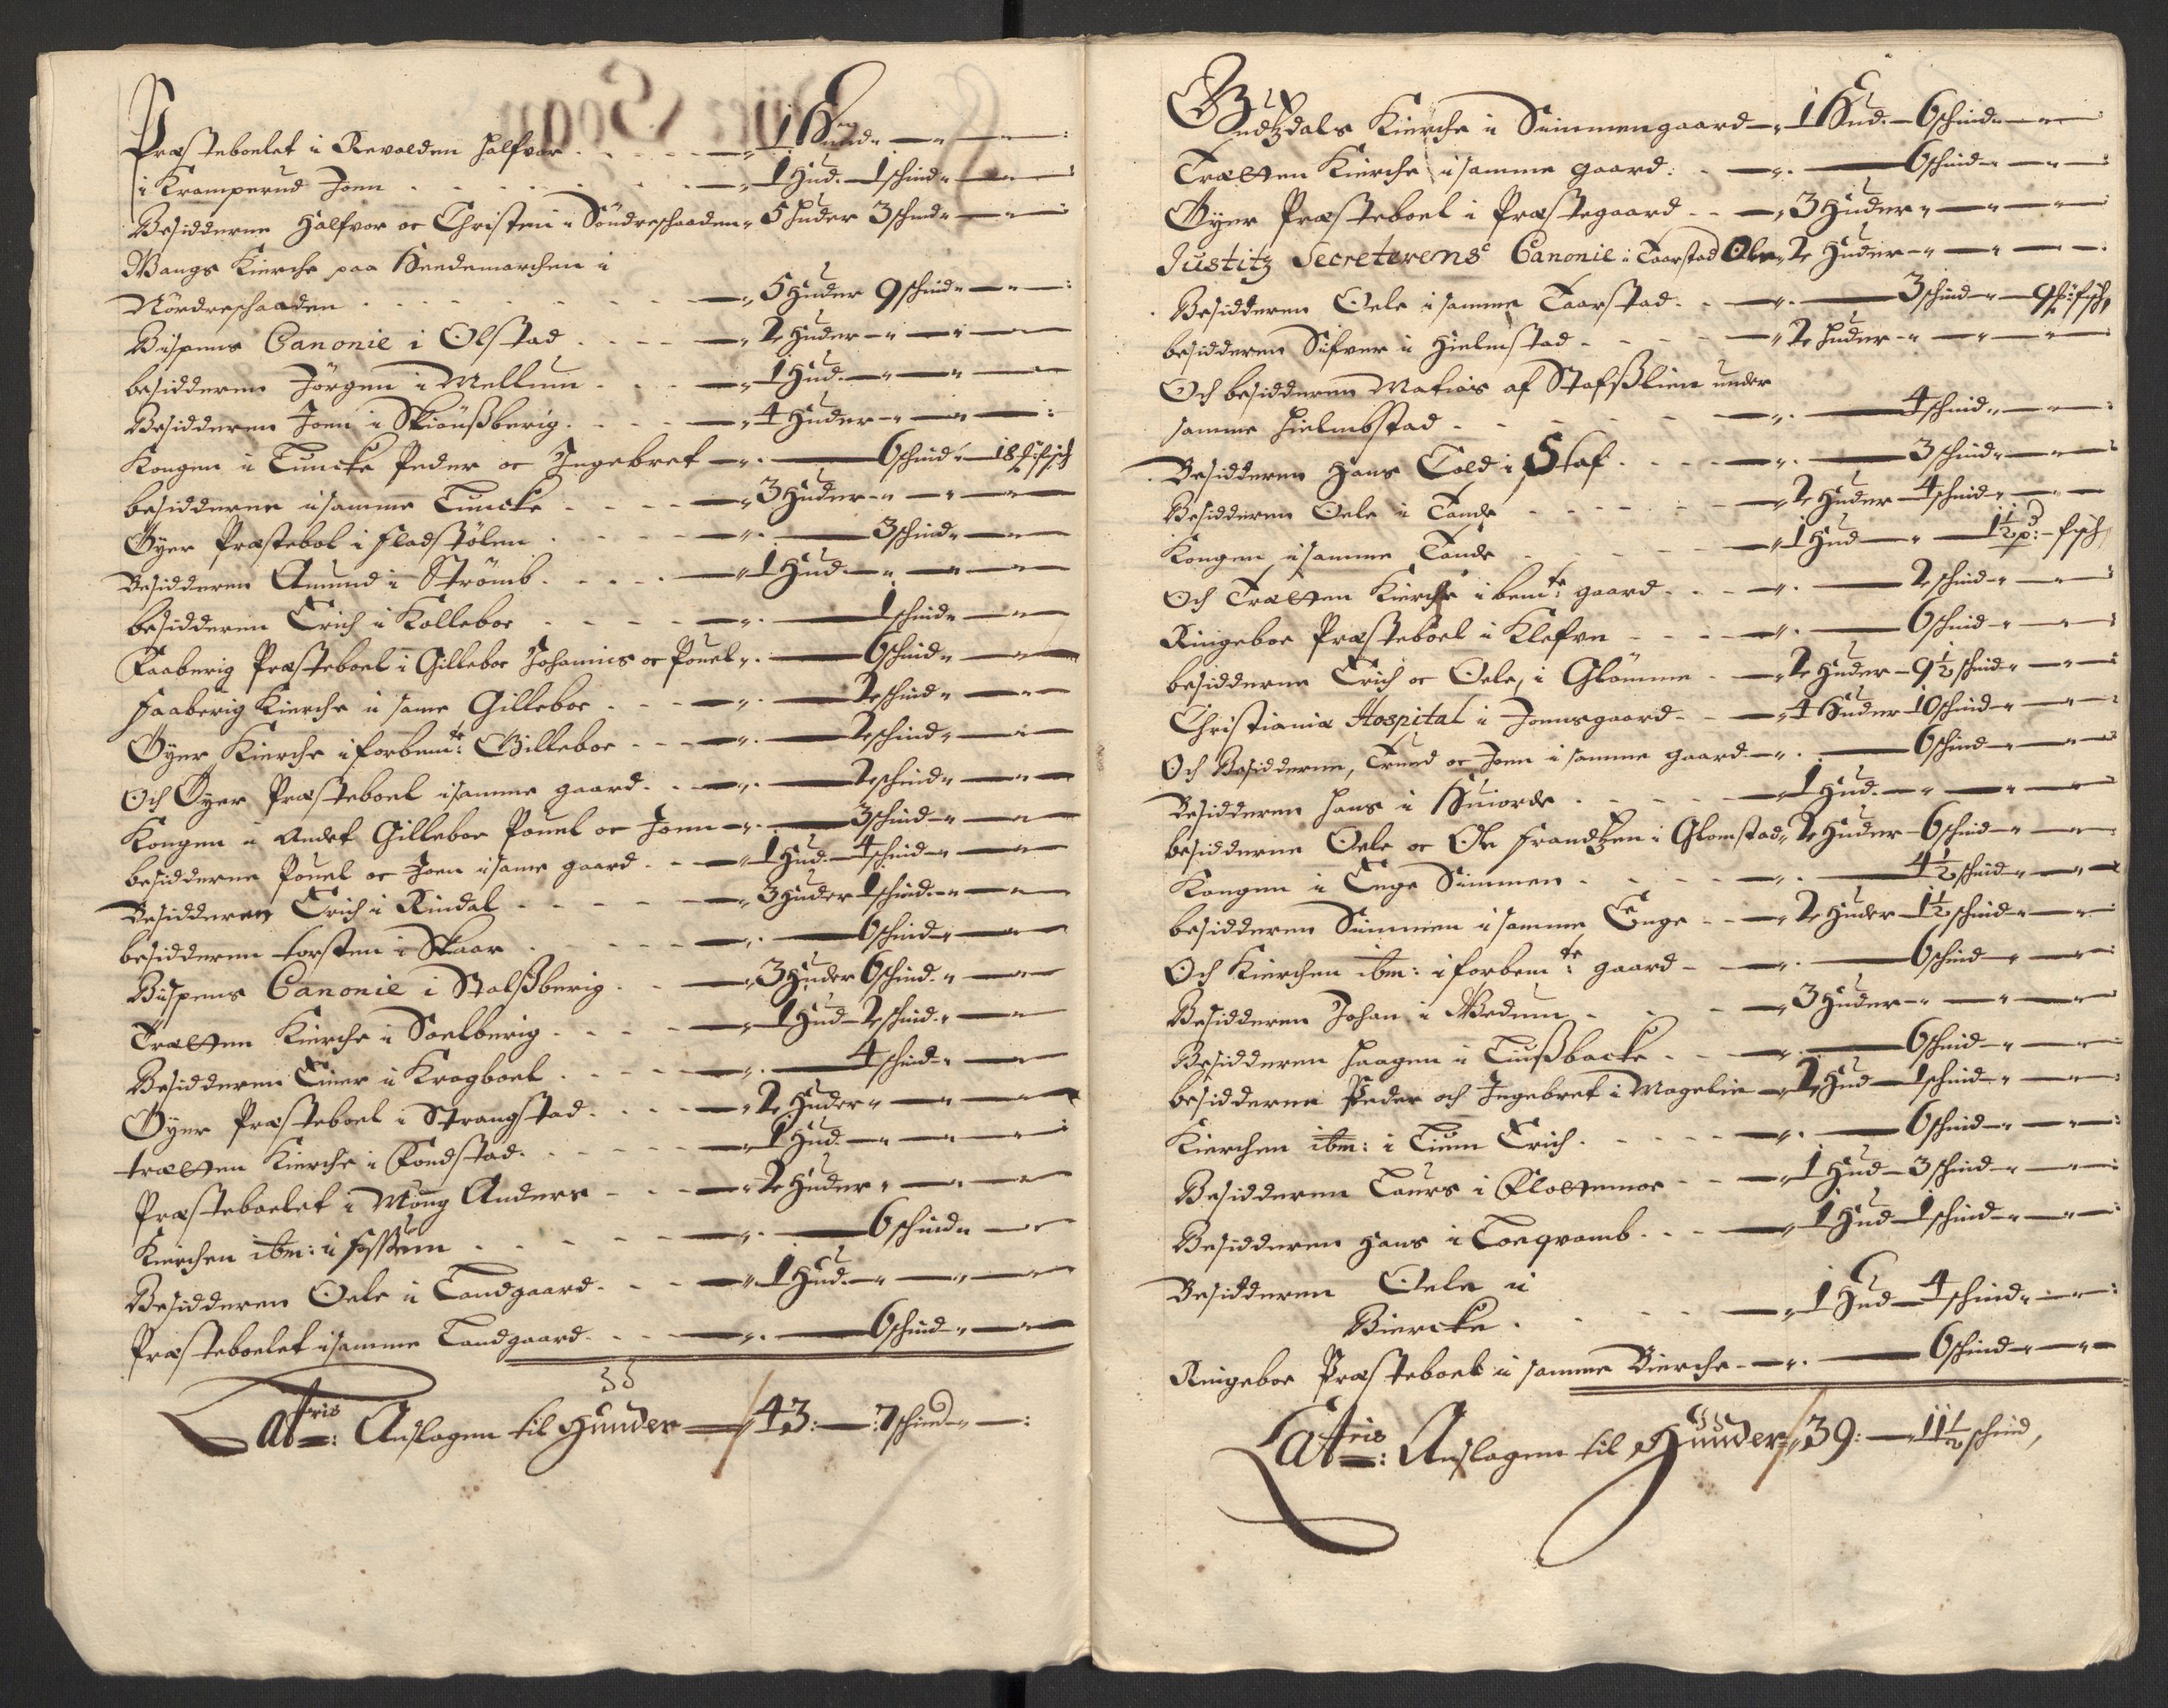 Præsteboelet i Revolden Halfvor - 1 Hud - -
i Kramperud Joen - 1 Hud - 1 schind -
Besidderne Halfvor oc Christen i Söndreschaaden - 5 Huder 3 schind -
Wangs Kierche paa Hendemarchen i
Nördreschaaden - 5 Huder 9 schind -
Bispens Canonie i Olstad - 2 Huder -
besidderen Jörgen i Mellum - 1 Hud -
Besidderen Joen i Skiönßberig - 4 Huder -
Kongen i Tuncke Peder oc Ingebret - 6 schind - 18 fisch
besidderne i samme Tuncke - 3 Huder -
Öyer Præstebol i Fladstölen - 3 schind -
Besidderen Amund i Strömb - 1 Hud -
besidderen Erich i Kolleboe - 1 schind -
Faaberig Præsteboel i Gilleboe Johannis oc Pouel - 6 schind -
Faaberig Kierche i same Gilleboe - 2 schind -
Öyer Kierche i forbemte: Gilleboe - 2 schind -
Och Öyer Præsteboel i samme gaard - 2 schind -
Kongen i Andet Gilleboe Pouel oc Joen - 3 schind -
besidderne Pouel oc Joen i same gaard - 1 Hud - 4 schind -
Besidderen Erich i Rindal - 3 Huder 1 schind -
besidderen torsten i Skaar - 6 schind -
Bispens Canonie i Stalßberig - 3 Huder 6 schind -
Tretten Kierche i Soelberig - 1 Hud - 2 schind -
Besidderen Einer i Kragboel - 4 schind -
Öyer Præsteboel i Strangstad - 2 Huder -
tretten Kierche i Fondstad - 1 Hud -
Præsteboelet i Moug Anders - 2 Huder -
Kierchen ibm: i Fossum - 6 schind -
Besidderen Oele i Landgaard - 1 Hud -
Præsteboelet i samme Landgaard - 6 schind -
Latris: Anslagen til Huuder - 43: - 7 schind -
Gudtzdals Kierche i Simmengaard - 1 Hud - 6 schind -
Tretten Kierche i samme gaard: - 6 schind -
Öyer Præsteboel i Præstegaard - 3 Huder -
Justitz Secreterens Canonie i Taarstad Ole - 2 Huder -
Besidderen Oele i samme Taarstad - 3 schind - 9 fisch
besidderen Sifver i Hielmstad - 2 Huder -
Och besidderen Matias af Stafßlien under
samme Hielmbstad - 4 schind -
Besidderen Hans Told i Staf - 3 schind -
Besidderen Oele i Tande - 2 Huder 4 schind -
Kongen i samme Tande - 1 Hud - 1½ p: fisch
Och Tretten Kierche i bemte: gaard - 2 schind -
Ringeboe Præsteboel i Klefve - 6 schind -
besidderne Erich oc Oele, i Glömme - 2 Huder - 9½ schind -
Christiania Hospital i Joensgaard - 4 Huder 10 schind -
Och Besidderne, Trund oc Joen i samme gaard - 6 schind -
Besidderen Hans i - 1 Hud -
besidderne Oele oc Ole Frandtzen i Glomstad - 2 Huder - 6 schind -
Kongen i Enge Simmen - 4½ schind -
besidderen Simmen i samme Enge - 2 Huder - 1½ schind -
Och Kierchen ibm: i forbemte: gaard - 6 schind -
Besidderen Johan i Wedum - 3 Huder -
Besidderen Haagen i Tiußbacke - 6 schind -
besidderne Peder och Ingebret i Magelie - 2 Hud - 1 schind -
Kierchen ibm: i Tium Erich - 6 schind -
Besidderen Laurs i Flottemoe - 1 Hud - 3 schind -
Besidderen Hans i Longvamb - 1 Hud - 1 schind -
Besidderen Oele i
Biercke - 1 Hud - 4 schind -
Ringeboe Præsteboel i samme Bierche - 6 schind -
Latris: Anslagen til Huuder - 39: - 11½ schind,